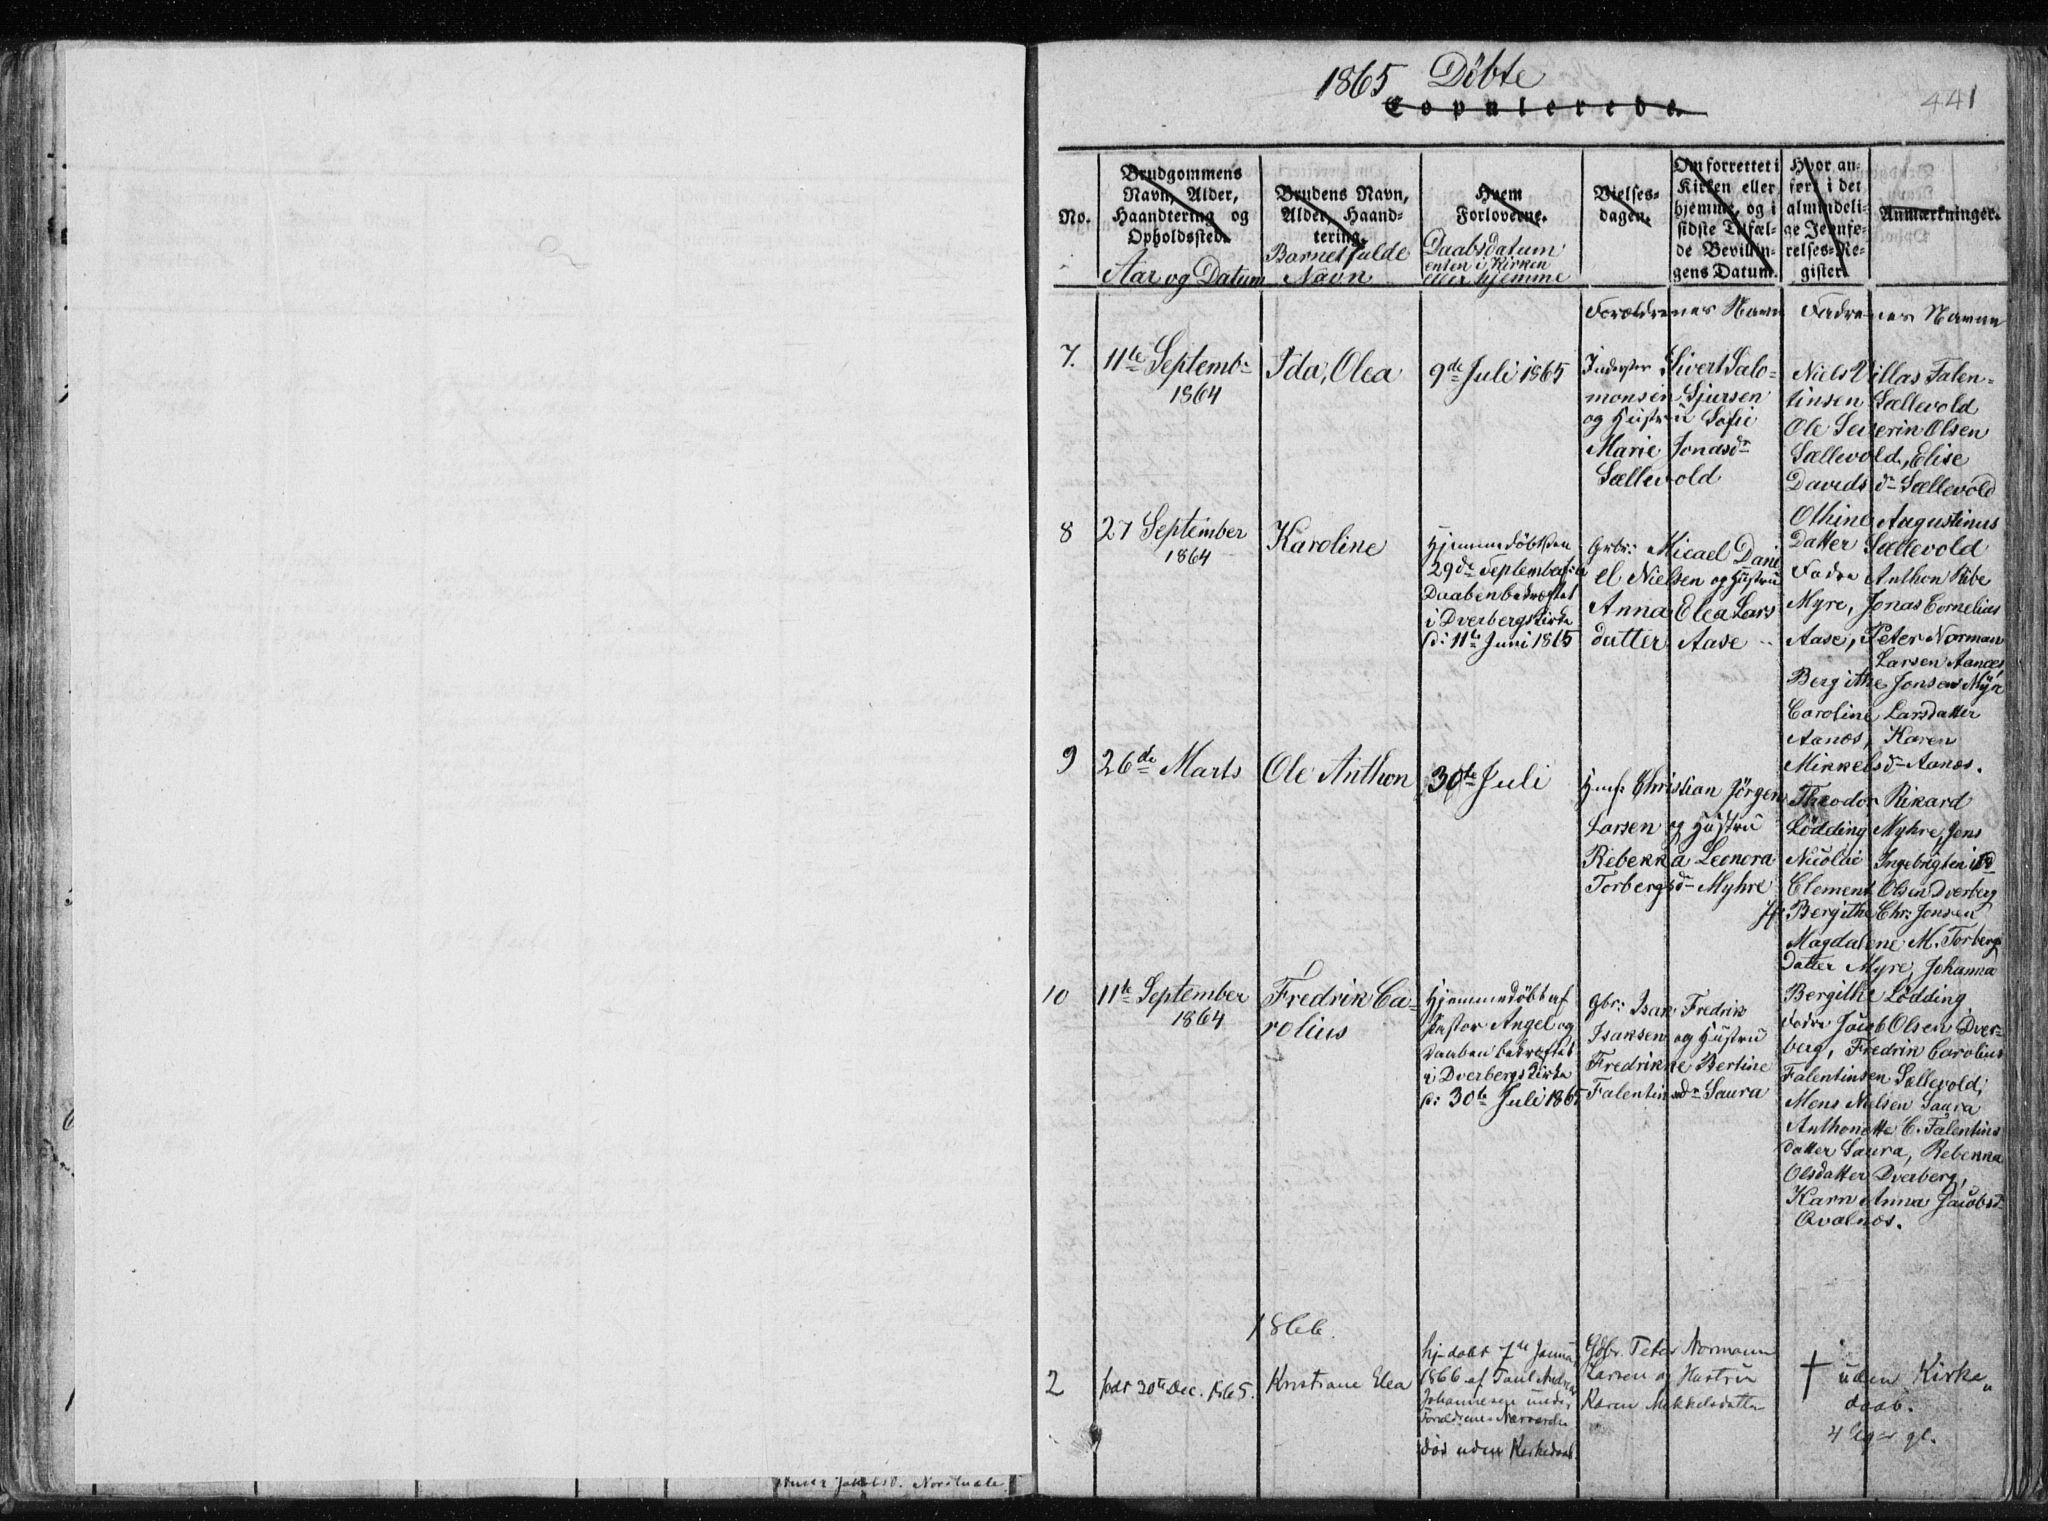 1865 Döbte
Copulerede.
441
No.
Brudgommens
Navn, Alder,
Haandtering og
Opholdssted.
Aar og Datum
Brudens Navn,
Alder, Haand-
tering.
Barnets fulde
Navn
Hvem
Forloverne.
Daabsdatum
enten i Kirken
eller hjemme
Vielses-
dagen.
Om forrettet i
Kirken eller
hjemme, og i
sidste Tilfæl-
de Bevillin-
gens Datum.
Hvor an-
ført i det
almindeli-
ge Jevnfø-
relses-Re-
gister.
Anmærkninger.
Forældrenes Navn
Fadrenes Navne
7.
11te Septemb.
1864
Ida, Olea
9de Juli 1865
Sivert Salo-
monsen Sjursen
og Hustru Sofie
Marie Jonasdr
Sællevold
Niels Villas Falen-
tinsen Sællevold
Ole Severin Olsen
Sællevold, Elise
Davids dr Sællevold
Othine Augustinus
Datter Sællevold
8
27 September
1864
Karoline
Hjemmedöbt den
29de September
Daaben bedræftet
i Dverbergs Kirke
d: 11te Juni 1865
Gbr: Micael Dani
el Nielsen og Hustru
Anna Elea Lars
datter Aase
Fadre Anthon Ribe
Myre, Jonas Cornelius
Aase, Peter Norman
Larsen Aanæs,
Bergithe Jonsen Myre
Caroline Larsdatter
Aanæs, Karen
Mikkelsdr Aanæs.
9
26de Marts
Ole Anthon
30te Juli
Christian Jörgen
Larsen og Hustru
Rebekka Leonora
Torbergsdr Myhre
Theodor Rikard
Lödding Myhre, Jens
Nicolai
Clement Olsen Dverberg
Bergithe Chr: Jonsen
Magdalene M. Torbergs
datter Myre, Johanna
Bergithe Lödding
10
11te September
1864
Fredrik Ca-
rolius
Hjemmedöbt af
Pastor Angel og
Daaben bedræftet
i Dverbergs Kirke
d: 30te Juli 1865
Gbr: Isak Fredrik
Isaksen og Hustru
Fredrikke Bertine
Falentinsdr Saura
Fadre Jacob Olsen Dver-
berg, Fredrik Carolius
Falentinsen Sællevold,
Mons Nielsen Saura
Anthonette C. Falentins
datter Saura, Rebekka
Olsdatter Dverberg,
Karn Anna Jacobsd
Qvalnæs.
1866.
2
födt 30te Dec. 1865.
Kristiane Elea
hj-dobt 7de Janua
1866 af Paul Andreas
Johannesen under
Forældrenes Nærværelse
död uden Kirkedaab
Gbr. Peter Normann
Larsen og Hustru
Karen Mikkelsdatter
† uden Kirke
daab.
4 Uger gl.
Jakobsd. Nordlunde